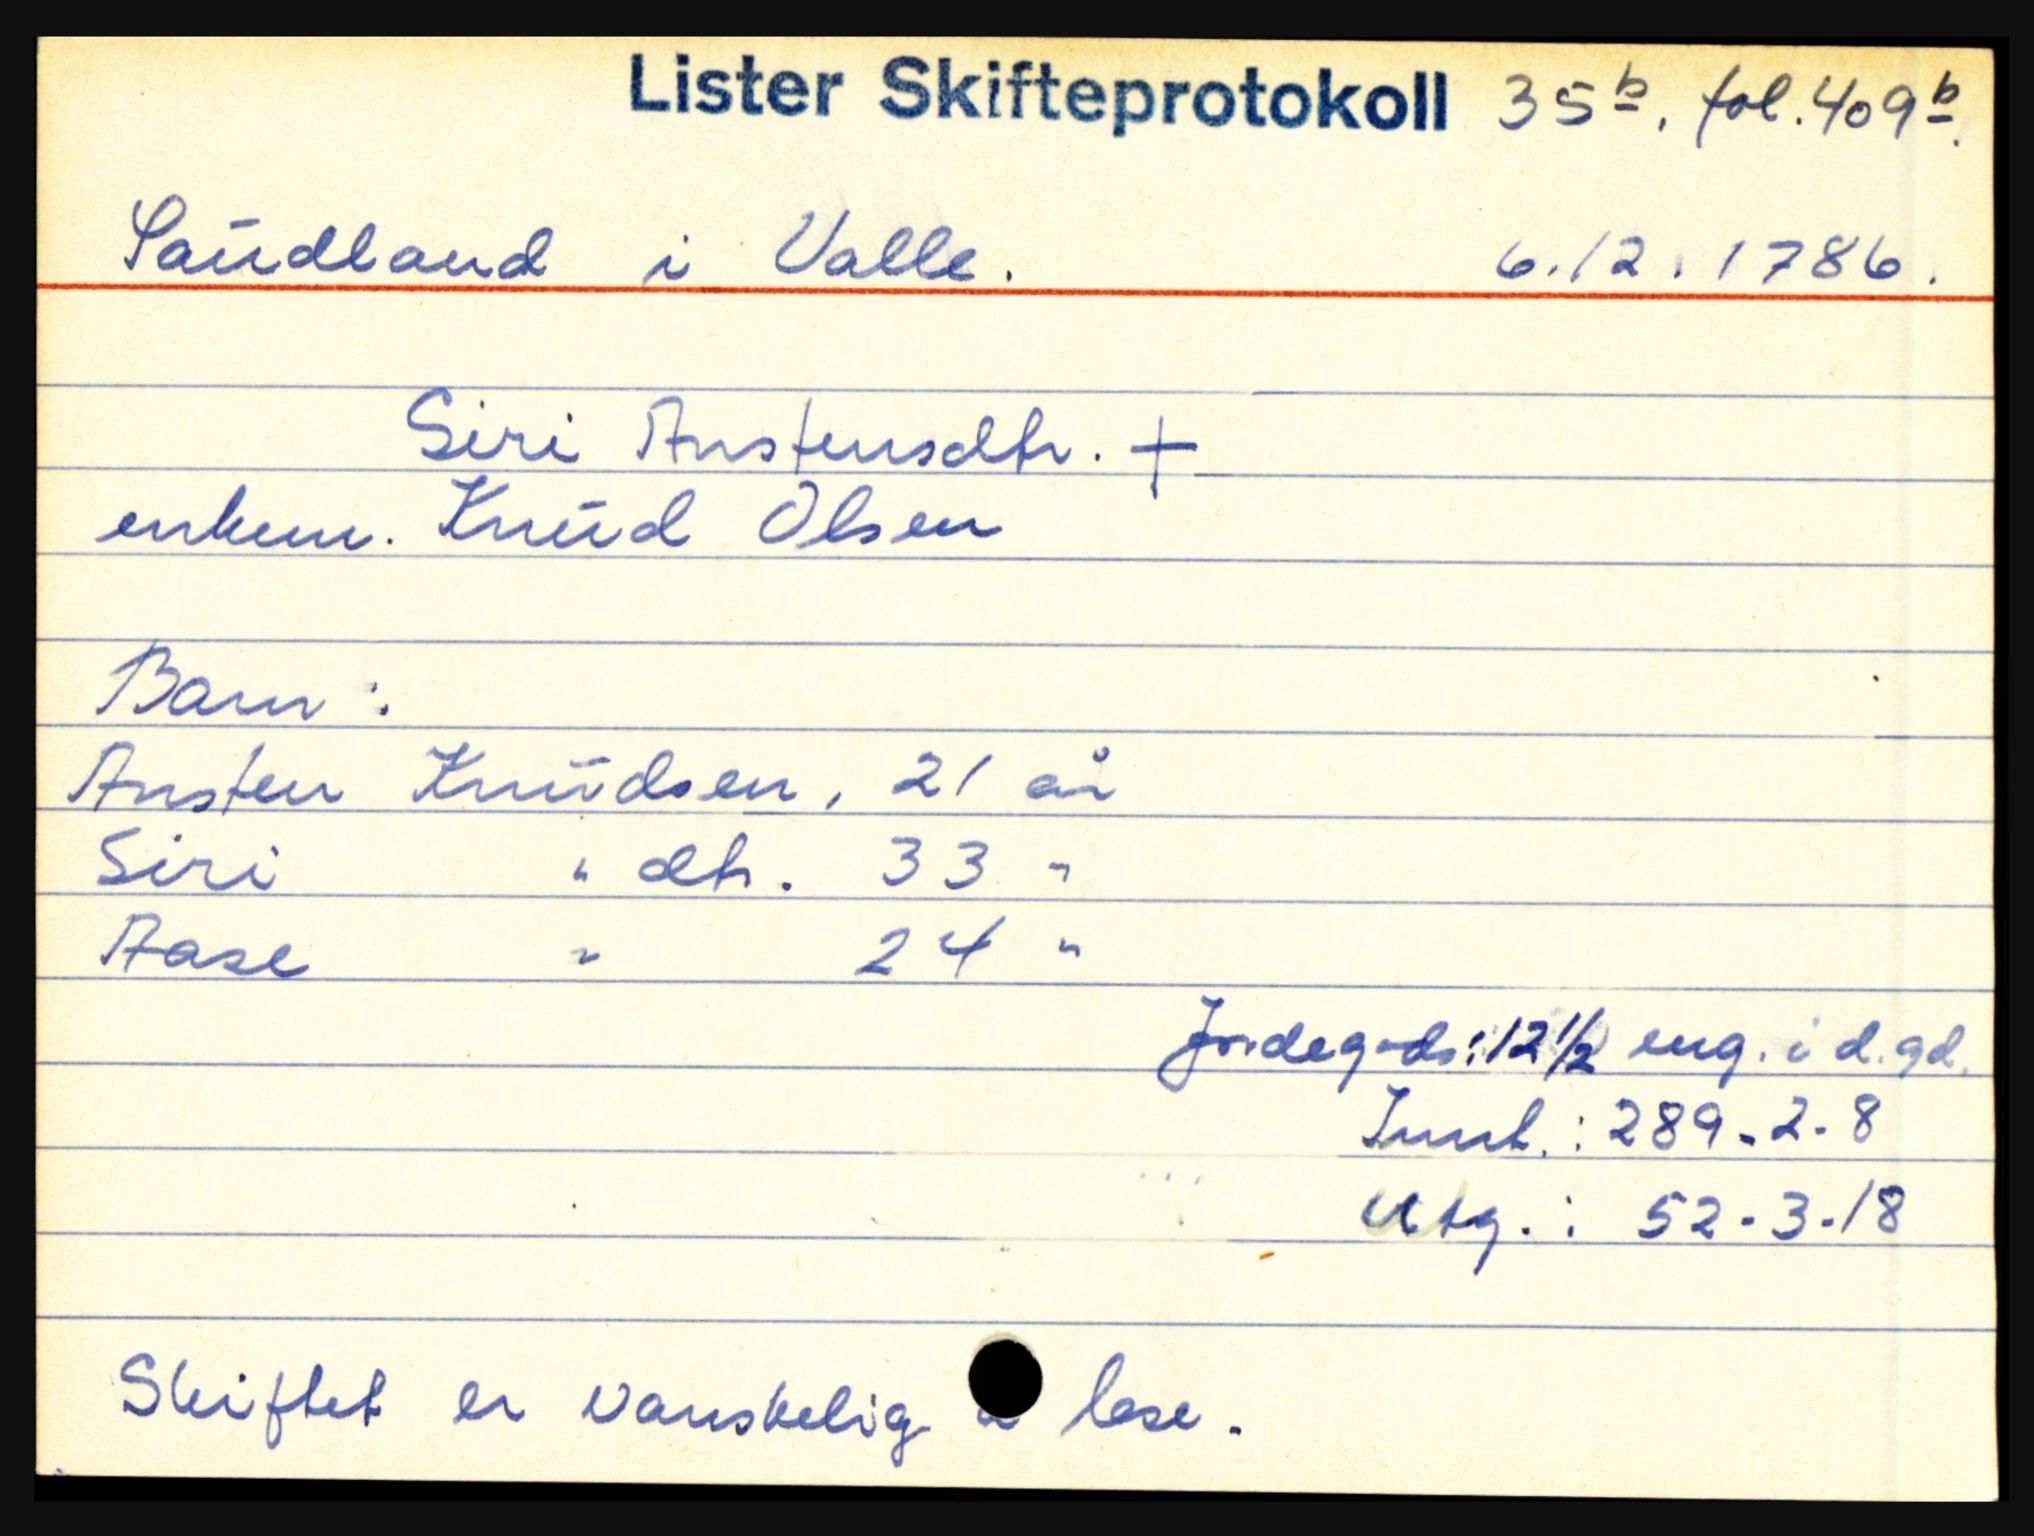 Lister Skifteprotokoll 35b, fol. 409b.
Saudland i Valle. 6.12.1786.
Siri Austensdtr. +
enkem. Knud Olsen
Barn:
Austen Knudsen, 21 år
Siri " dtr. 33 "
Aase " 24 "
Jordegods: 12 1/2 eng. i d. gd.
Innt.: 289-2-8
Utg.: 52-3-18
Skiftet er vanskelig å lese.